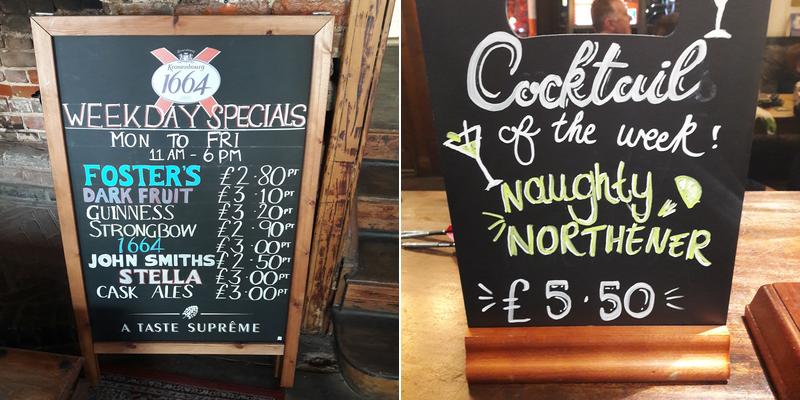 Kronenbourg
1664
WEEKDAY SPECIALS
MON TO FRI
11AM - 6PM
FOSTER'S £2.80PT
DARK FRUIT £3.10PT
GUINNESS £3.20PT
STRONGBOW £2.90PT
1664 £3.00PT
JOHN SMITHS £2.50PT
STELLA £3.00PT
CASK ALES £3.00PT
A TASTE SUPRÊME
Cocktail
of the week!
Naughty
NORTHENER
£5.50